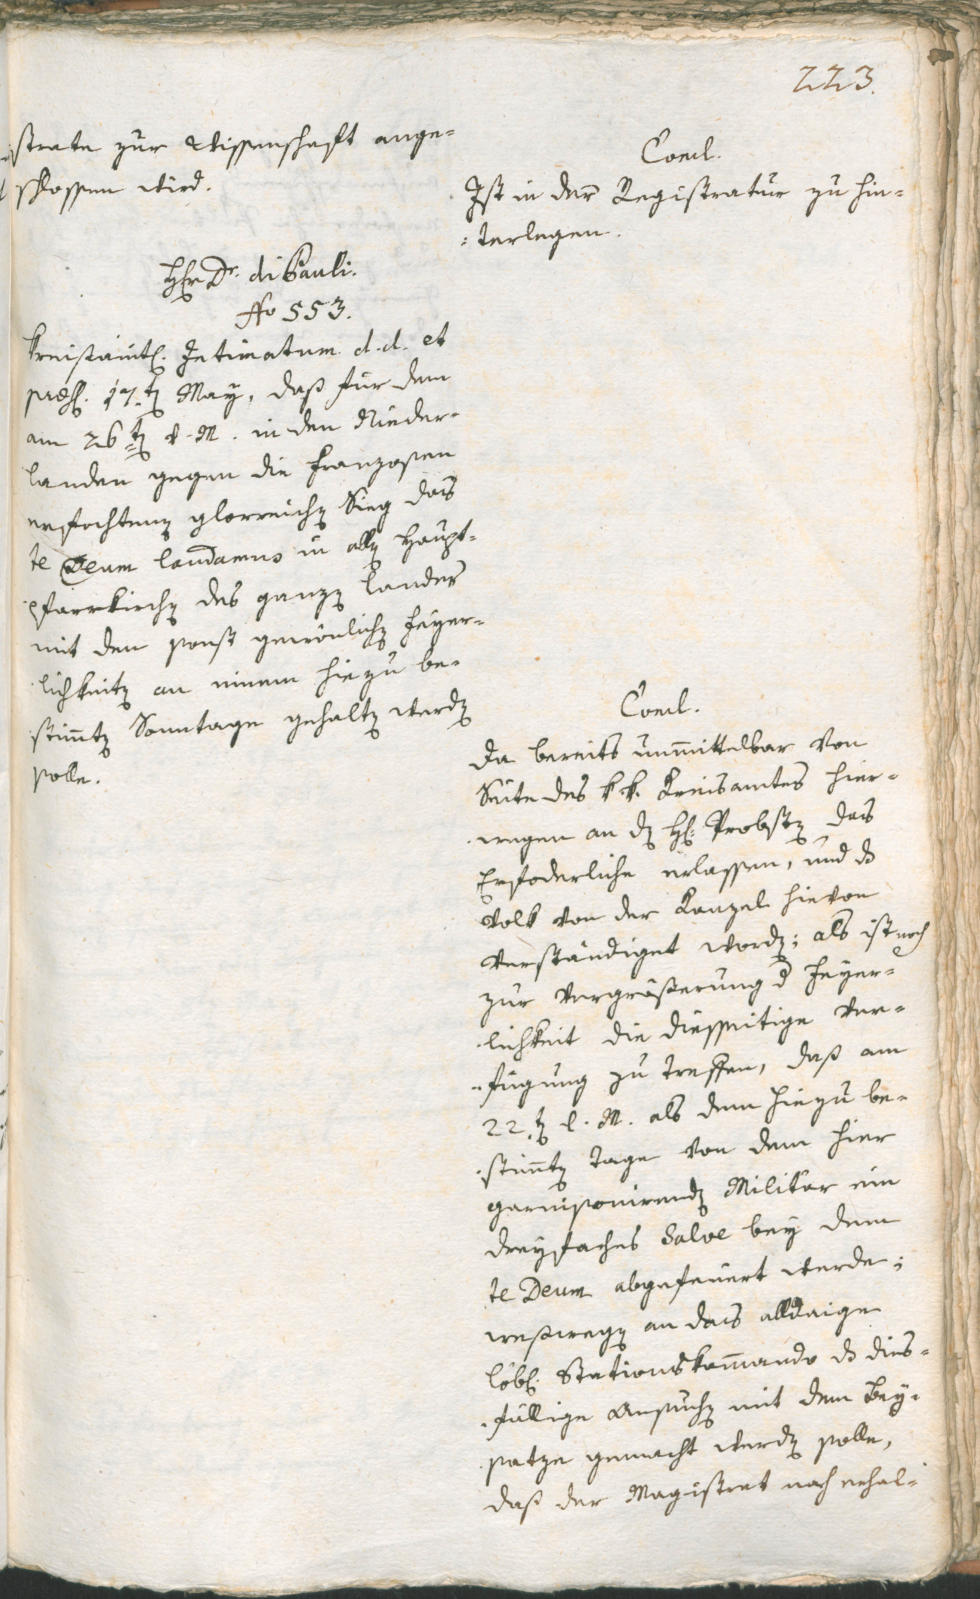 223.
strate zur Wissenschaft ange=
schlossen wird.
Concl.
Ist in der Registratur zu hin=
=terlegen.
Hr Dr. di Pauli.
No 553.
Kreisämtl. Intimatum d. d. et
präs. 17.t May, daß für den
am 26t v. M. in den Nieder=
landen gegen die Franzosen
erfochten glorreich Sieg das
te Deum laudamus in all Haupt=
pfarrkirch des ganz Landes
mit den sonst gewönlich Feyer=
lichkeit an einem hiezu be=
stimt Sonntage gehalt werd
solle.
Concl.
Da bereits unmittelbar von
Seite des k. k. Kreisamtes hier=
wegen an d H: Probst das
Erfoderliche erlassen, und d
Volk von der Kanzel hievon
verständiget word; als ist noch
zur Vergrößerung d Feyer=
lichkeit die diesseitige Ver=
=fügung zu treffen, daß am
22.t l. M. als dem hiezu be=
stimt Tage von dem hier
garnisonirend Militar ein
dreyfaches Salve bey dem
te Deum abgefeuert werde;
weßweg an das alldaige
löbl. Stationskomando d dies=
fällige Ansuch mit dem Bey=
satze gemacht werd solle,
daß der Magistrat noch erhal=